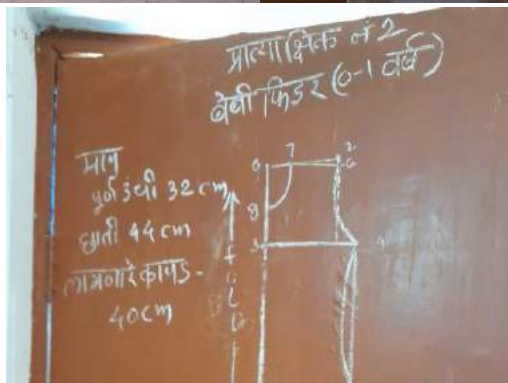 प्रात्याक्षिक नं 2
बेबी फिडर (0-1 वर्ष)
माप
पूर्ण उंची 32 cm
छाती 44 cm
लागनारे कापड -
40cm
0 7 2
6
8
3 4
FOLD